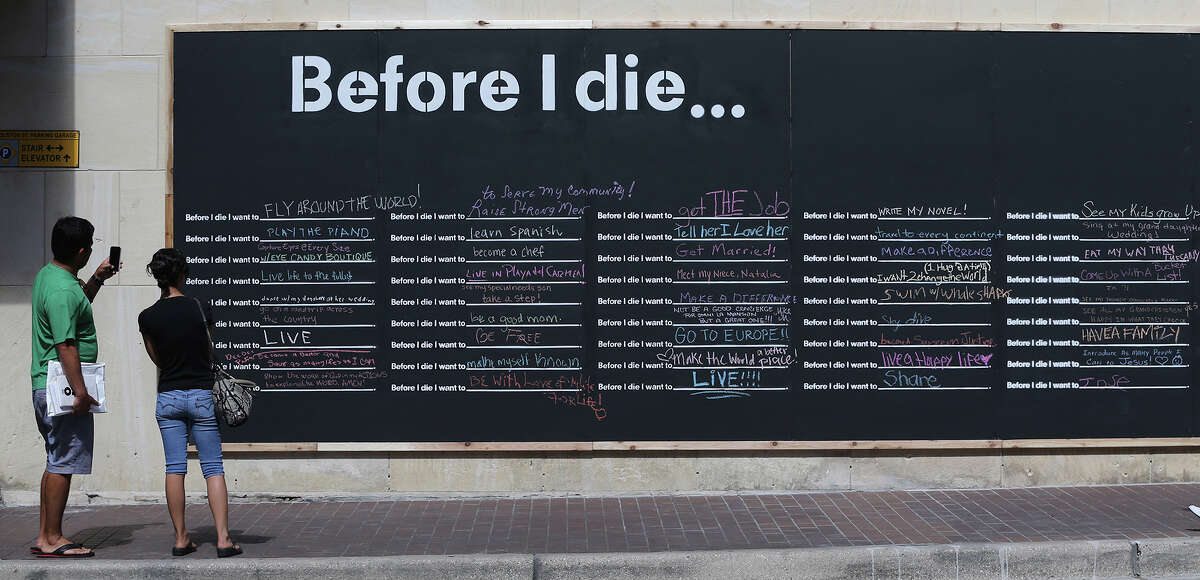 Before I die...
STAIR
ELEVATOR
P
Before I die I want to FLY AROUND THE WORLD!
Before I die I want to PLAY THE PIANO
Before I die I want to EYE CANDY BOUTIQUE
Before I die I want to Live life to the fullest
Before I die I want to dance w/ my dream at her wedding
go on a roadtrip across
the country
LIVE
Become a Doctor and
Save as many lives as I can
to Serve My Community!
Before I die I want to Raise Strong Men
Before I die I want to learn Spanish
Before I die I want to become a chef
Before I die I want to LIVE IN PLAYA del CARMEN
Before I die I want to see my special needs son
take a step!
Before I die I want to be a good mom.
Before I die I want to BE FREE
Before I die I want to make myself known
Before I die I want to BE With Love of My Life
For Life!
Before I die I want to get THE Job
Before I die I want to Tell her I Love her
Before I die I want to Get Married!
Before I die I want to Meet my Niece, Natalia
Before I die I want to MAKE A DIFFERENCE
Before I die I want to NOT BE A GOOD CONCIERGE
BUT A GREAT ONE!!!
Before I die I want to GO TO EUROPE!!
Before I die I want to Make the World a better
place.
Before I die I want to LIVE!!!!
Before I die I want to WRITE MY NOVEL!
Before I die I want to travel to every continent
Before I die I want to MAKE A DIFFERENCE
(1 Hug at a time)
Before I die I want to I want 2 change the World
Before I die I want to SWIM w/ Whale SHARKS
Before I die I want to Sky dive
Before I die I want to
Before I die I want to live a Happy life
Before I die I want to Share
Before I die I want to See My Kids grow Up
Before I die I want to Sing at my grand daughter
Wedding!
Before I die I want to EAT MY WAY THRU
TUSCANY
Before I die I want to COME UP WITH A Bucket
List!
Before I die I want to
Before I die I want to
Before I die I want to HAVE A FAMILY
Before I die I want to Introduce As many People I
Can to Jesus!
Before I die I want to